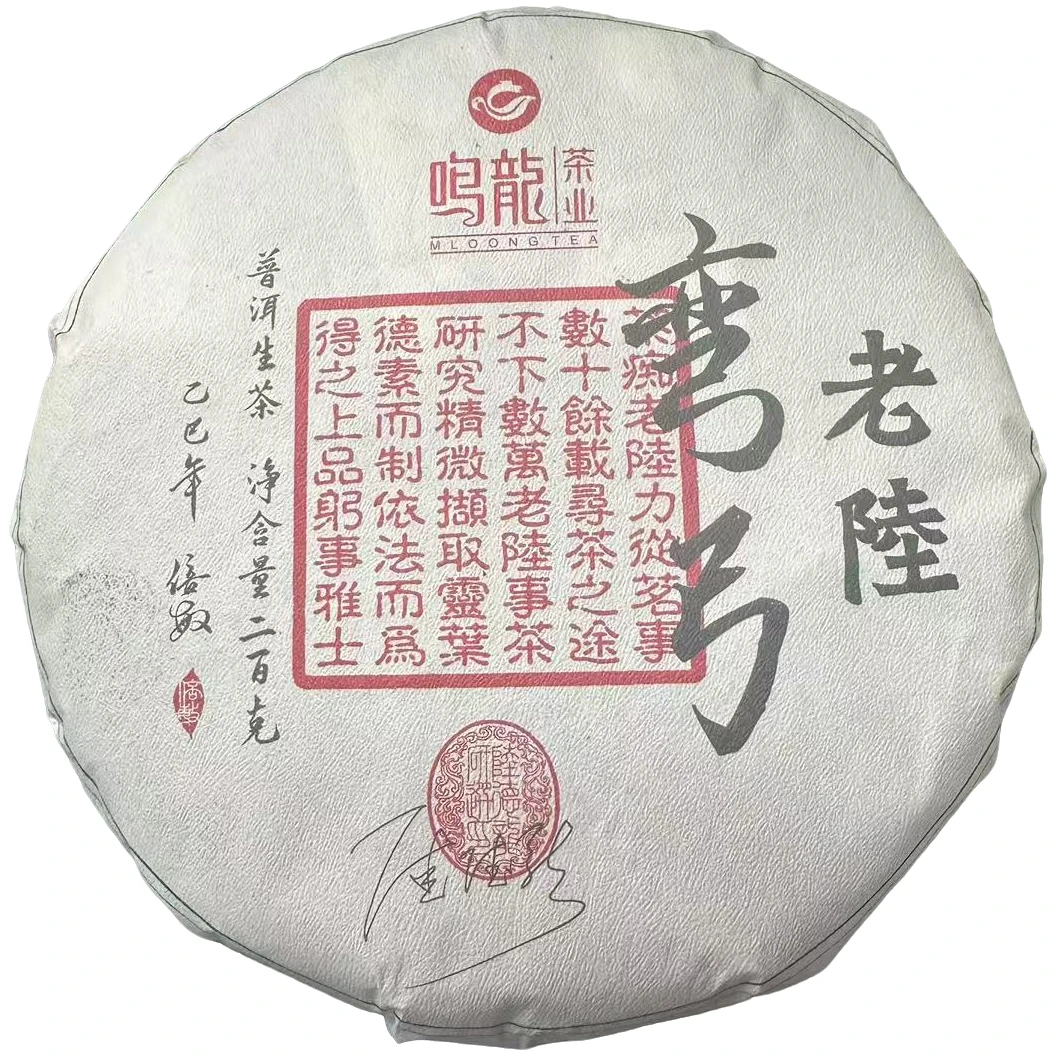 鸣龍
茶业
MLOONG TEA
老陸
弯弓
茶痴老陸力從茗事
數十餘載尋茶之途
不下數萬老陸事茶
研究精微擷取靈葉
德素而制依法而爲
得之上品躬事雅士
普洱生茶 净含量二百克
乙巳年 倍敏